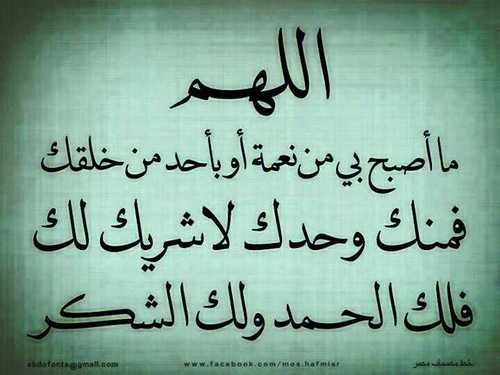 اللهم
ما أصبح بي من نعمة أو بأحد من خلقك
فمنك وحدك لا شريك لك
فلك الحمد ولك الشكر
abdofonts@gmail.com
www.facebook.com/mos.hafmisr
خط مصحف مصر